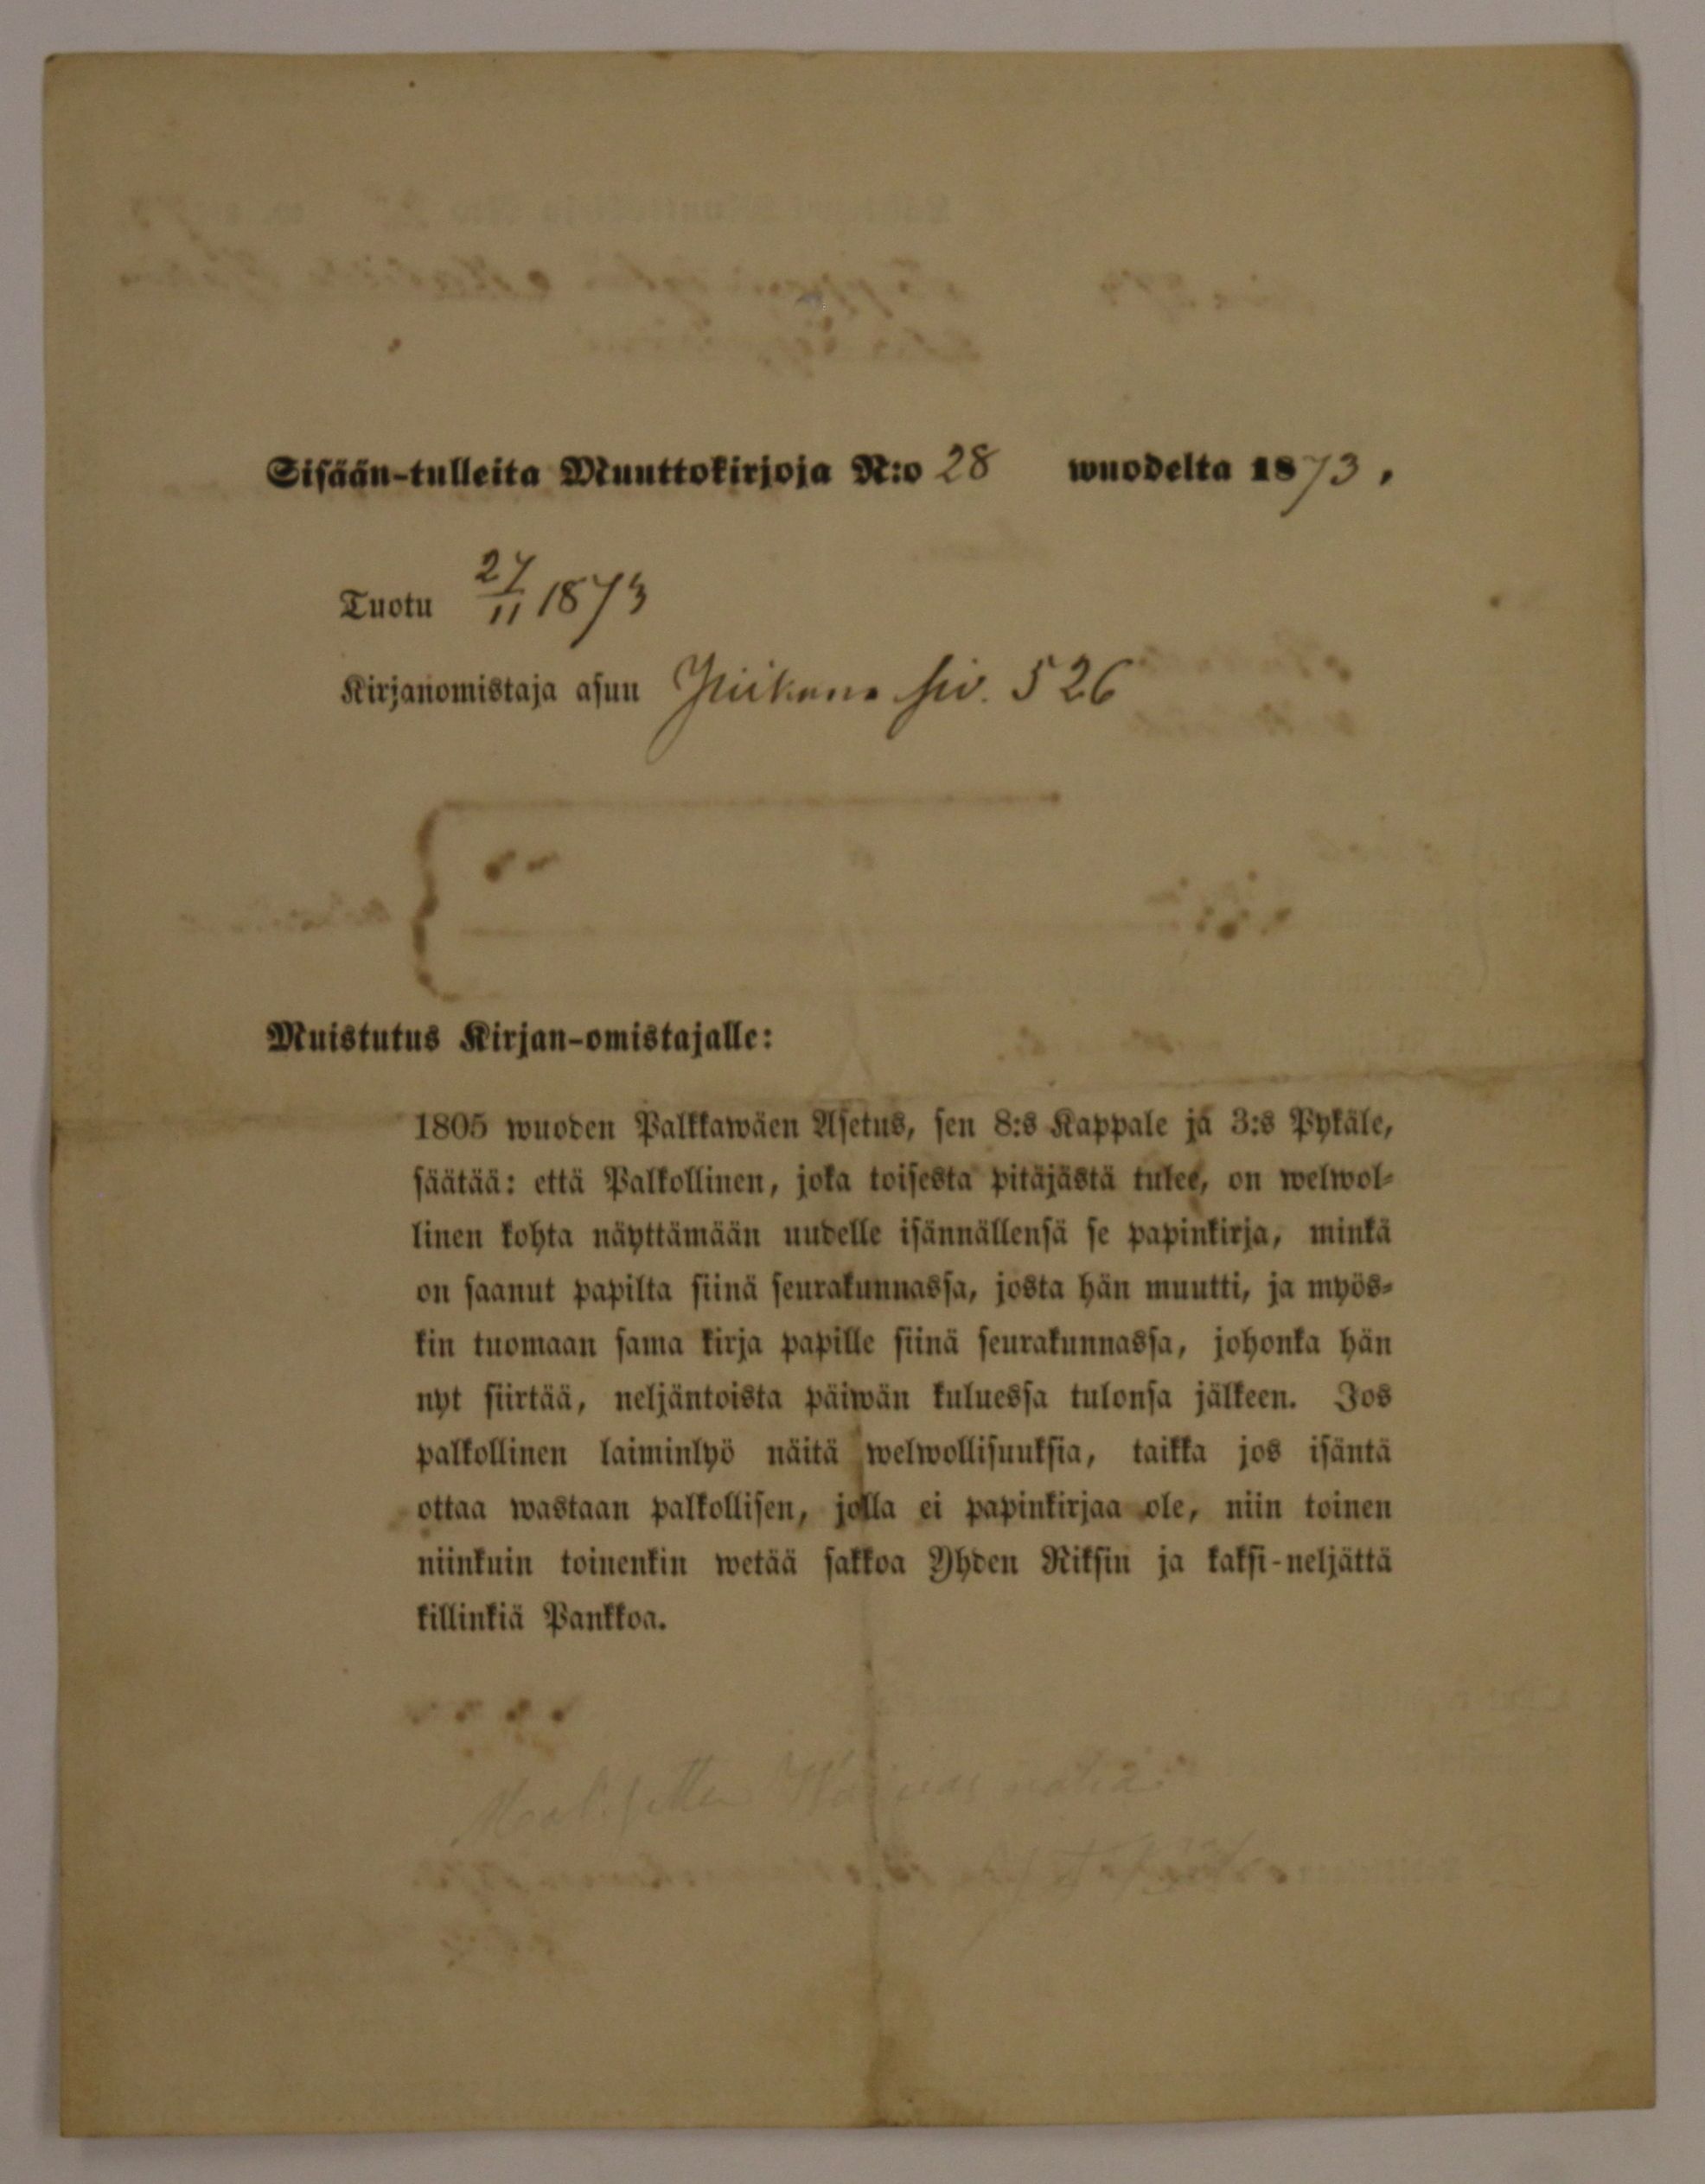 Sisään-tulleita Muuttokirjoja N:o 28 wuodelta 1873.
Tuotu 27/11 1873
Kirjanomistaja asuu siv. 526
Muistutus Kirjan-omistajalle:
1805 wuoden Palkkawäen Asetus, sen 8:s Kappale ja 3:s Pykäle,
säätää: että Palkollinen, joka toisesta pitäjästä tulee, on welwol-
linen kohta näyttämään uudelle isännällensä se papinkirja, minkä
on saanut papilta siinä seurakunnassa, josta hän muutti, ja myös-
kin tuomaan sama kirja papille siinä seurakunnassa, johonka hän
nyt siirtää, neljäntoista päiwän kuluessa tulonsa jälkeen. Jos
palkollinen laiminlyö näitä welwollisuuksia, taikka jos isäntä
ottaa wastaan palkollisen, jolla ei papinkirjaa ole, niin toinen
niinkuin toinenkin wetää sakkoa Yhden Riksin ja kaksi-neljättä
killinkiä Pankkoa.